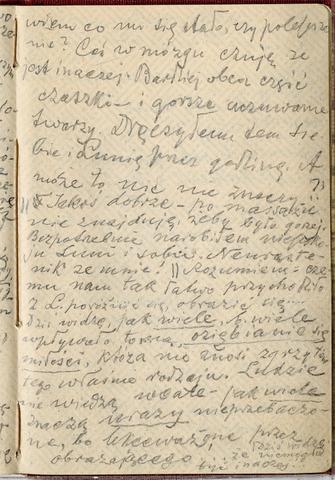 wiem co mi się stało, czy polepsze
nie? Coś w mózgu czuję, że
jest inaczej. Bardziej obca część
czaszki – i gorsze uczuwanie
twarzy. Dręczyłem tem sie
bie i Lunię przez godzinę. A
może to nic nie znaczy!?
|| Jakoś dobrze – po masażu
nie znajduję, żeby było gorzej.
Bezpotrzebnie narobiłem niepoko
ju Luni i sobie. Neuraste-
nik ze mnie! || Rozumiem – cze
mu nam tak łatwo przychodziło
z L. poróżnić się, obrazić się...
dziś widzę, jak wiele, b. wiele
wpływało to na oziębianie się
miłości, która nie znosi zgrzytów
tego właśnie rodzaju. Ludzie
nie wiedzą wcale – jak wiele
znaczą urazy nieprzebaczo-
ne, bo lekceważone przez
obrażającego...
Dziś widzę
że nie mogło
być inaczej.